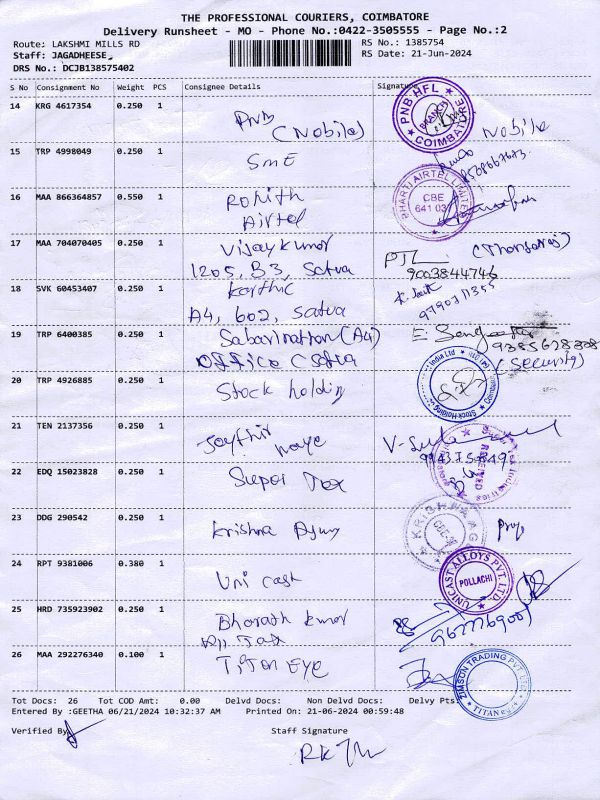 THE PROFESSIONAL COURIERS, COIMBATORE
Delivery Runsheet - MO - Phone No.:0422-3505555 - Page No.:2
Route: LAKSHMI MILLS RD
RS No.: 1385754
Staff: JAGADHEESE,
RS Date: 21-Jun-2024
DRS No.: DCJB138575402
S No Consignment No Weight PCS Consignee Details Signature
14 KRG 4617354 0.250 1 PNB (Nobile) Nobile
PNB HFL BRANCH COIMBATORE
15 TRP 4998049 0.250 1 SME
16 MAA 866364857 0.550 1 Rohith
Airtel
BHARTI AIRTEL LIMITED CBE
17 MAA 704070405 0.250 1 Vijaykumar
1205, B3, Satva
9003844746
18 SVK 60453407 0.250 1 Karthic
A4, 602, Satva
9790711355
19 TRP 6400385 0.250 1 Sabarinathan (A4)
Office
(Security)
20 TRP 4926885 0.250 1 Stock holding
Stock Holding India Ltd
21 TEN 2137356 0.250 1
22 EDQ 15023828 0.250 1 Super Tex
RECEIVED
23 DDG 290542 0.250 1 Krishna
KRISHNA AG
24 RPT 9381006 0.380 1 Uni cast
UNICAST ALLOYS PVT. LTD. POLLACHI
25 HRD 735923902 0.250 1 Bharath kumar
26 MAA 292276340 0.100 1 Titan Eye
ZIMSON TRADING PVT LTD TITAN
Tot Docs: 26 Tot COD Amt: 0.00 Delvd Docs: Non Delvd Docs: Delvy Pts:
Entered By :GEETHA 06/21/2024 10:32:37 AM Printed On: 21-06-2024 00:59:48
Verified By
Staff Signature